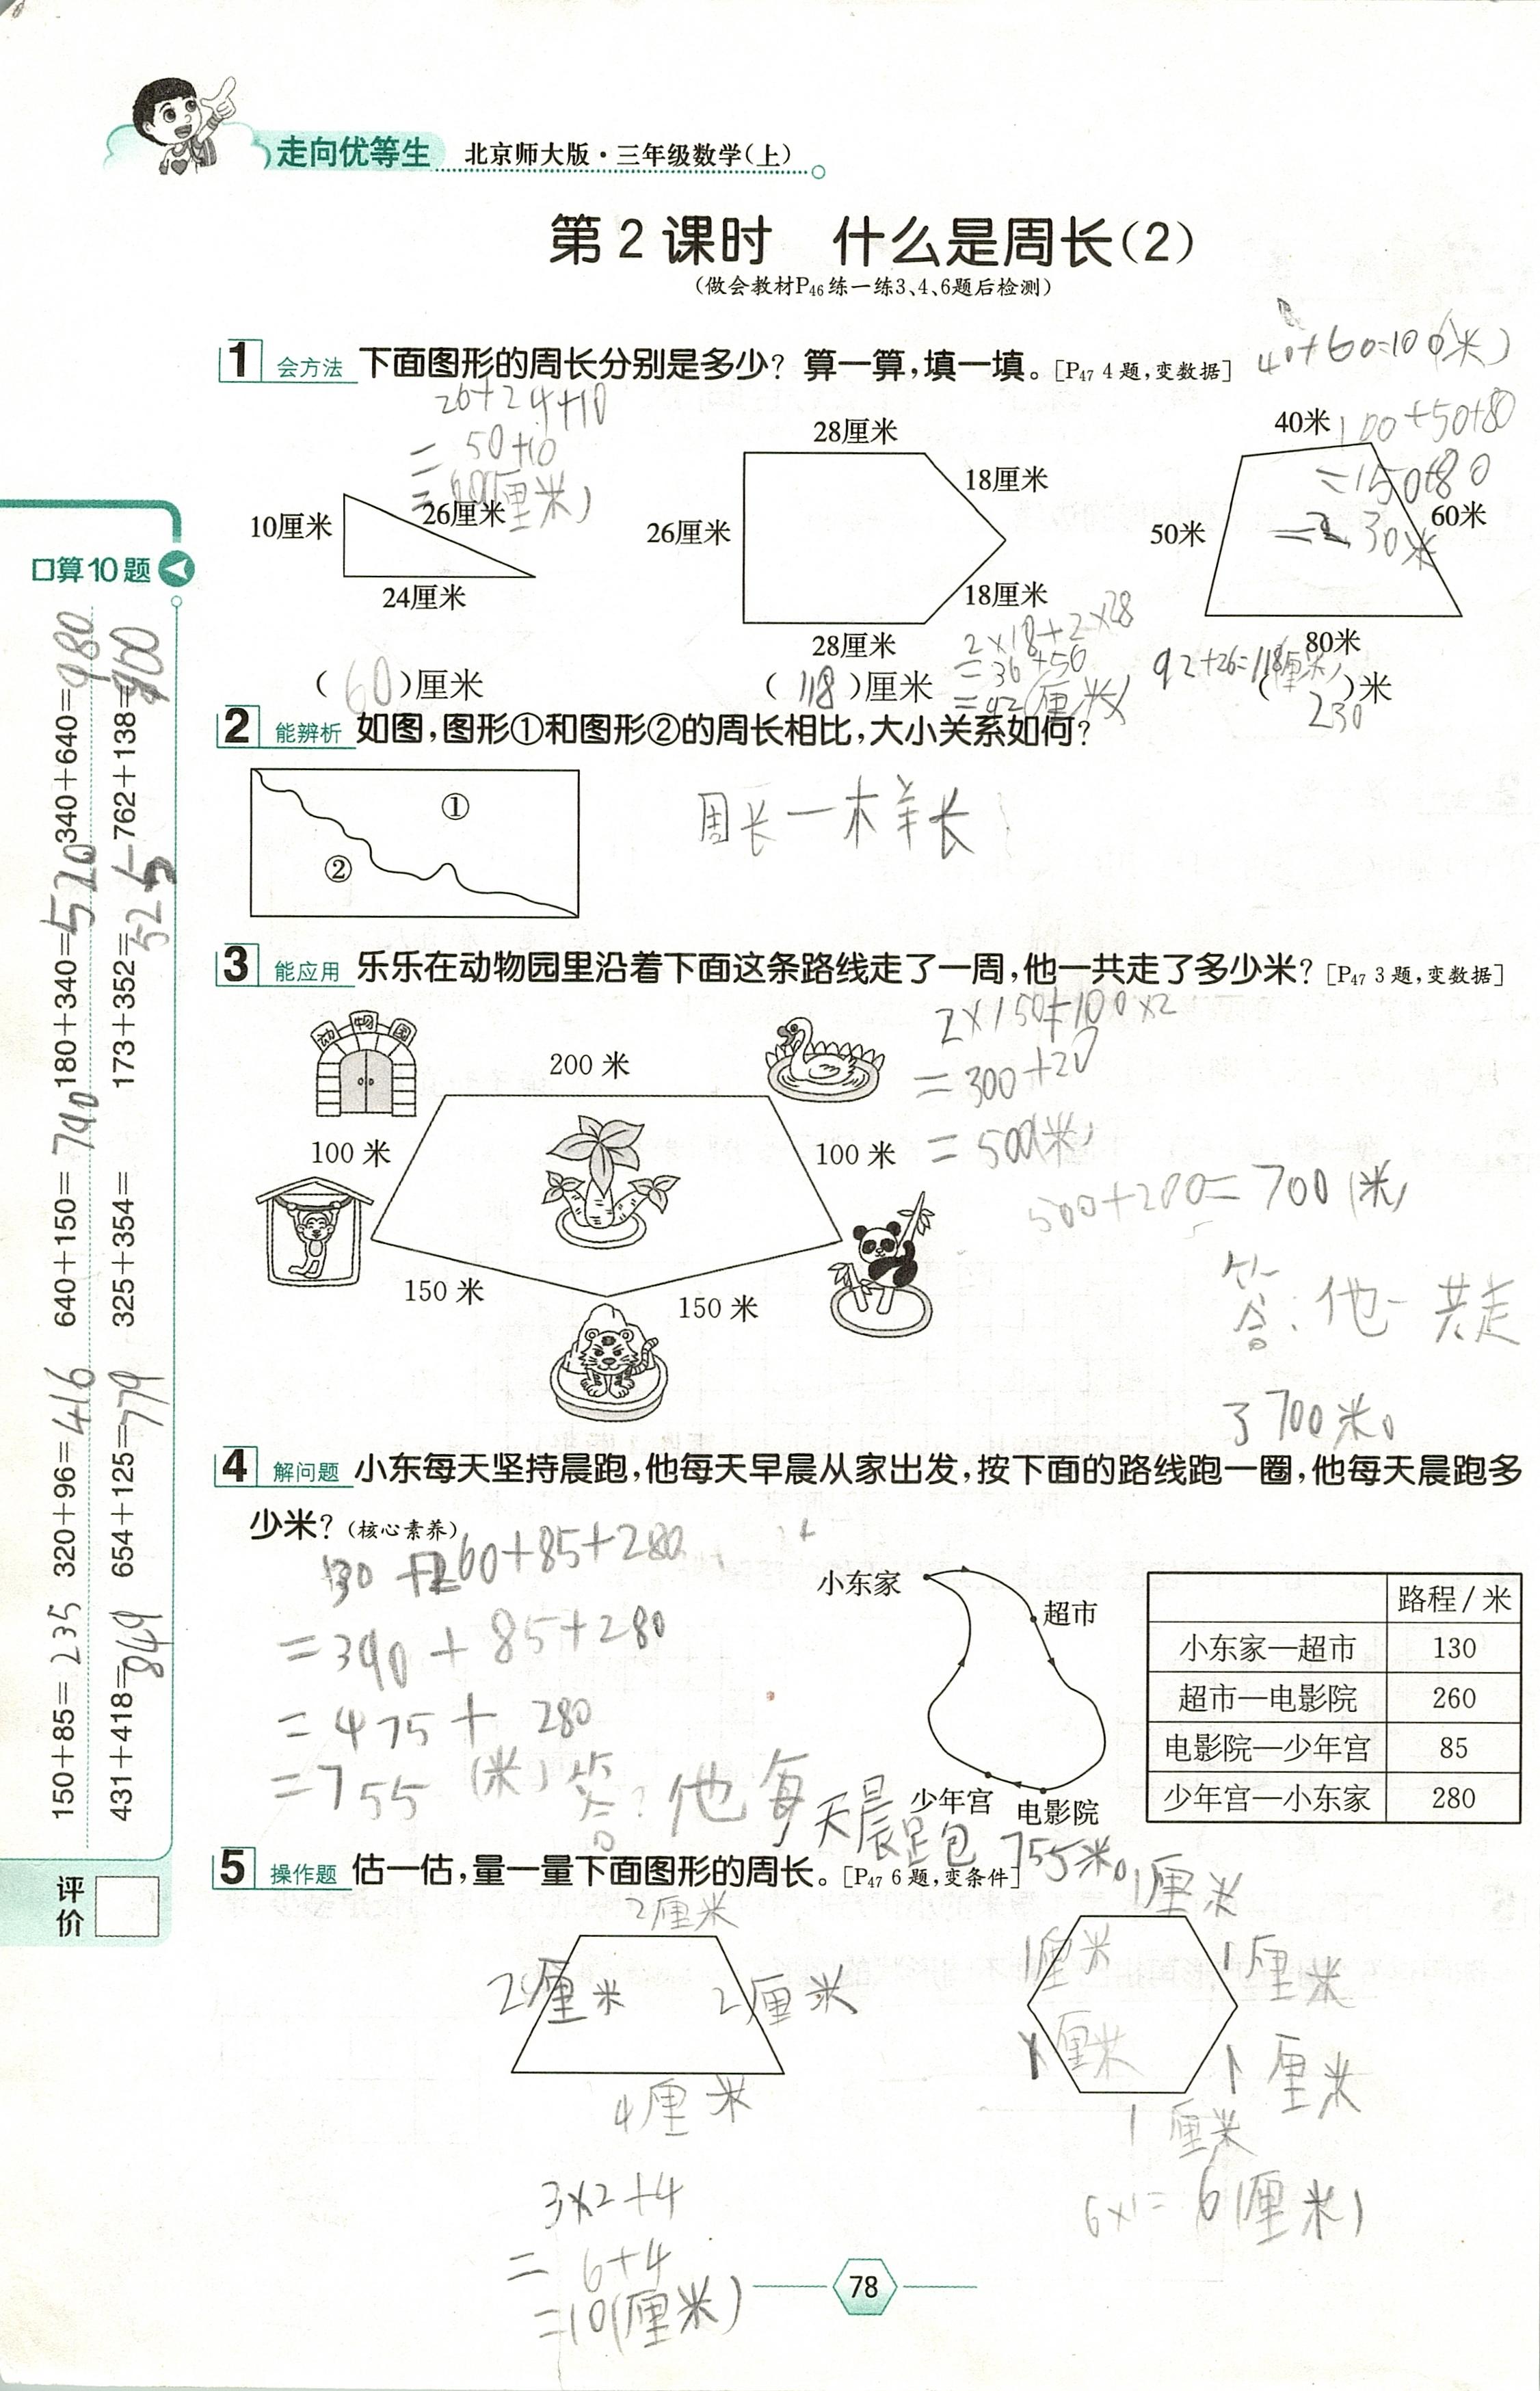 走向优等生 北京师大版·三年级数学(上)
第2课时 什么是周长(2)
(做会教材P46练一练3、4、6题后检测)
1 会方法 下面图形的周长分别是多少？算一算，填一填。[P47 4题，变数据]
40+60=100(米)
26+24+10
=50+10
=60(厘米)
10厘米
26厘米
24厘米
(60)厘米
28厘米
18厘米
26厘米
18厘米
28厘米
2×18+2×28
=36+56
=92(厘米)
92+26=118(厘米)
(118)厘米
40米
100+50+80
=150+80
=230米
50米
60米
80米
( )米
230
2 能辨析 如图，图形①和图形②的周长相比，大小关系如何？
①
②
周长一样长
3 能应用 乐乐在动物园里沿着下面这条路线走了一周，他一共走了多少米？[P47 3题，变数据]
动物园
200米
100米
100米
150米
150米
2×150+100×2
=300+20
=500(米)
500+200=700(米)
答：他一共走
了700米。
4 解问题 小东每天坚持晨跑，他每天早晨从家出发，按下面的路线跑一圈，他每天晨跑多
少米？(核心素养)
130+260+85+280
=390+85+280
=475+280
=755(米)
答：他每天晨跑755米。
小东家
超市
少年宫
电影院
路程/米
小东家—超市 130
超市—电影院 260
电影院—少年宫 85
少年宫—小东家 280
5 操作题 估一估，量一量下面图形的周长。[P47 6题，变条件]
2厘米
2厘米
2厘米
4厘米
3×2+4
=6+4
=10(厘米)
1厘米
1厘米
1厘米
1厘米
1厘米
1厘米
6×1=6(厘米)
口算10题
150+85=235 320+96=416 640+150=790 180+340=520 340+640=980
431+418=849 654+125=779 325+354= 173+352=525 762+138=900
评价
78